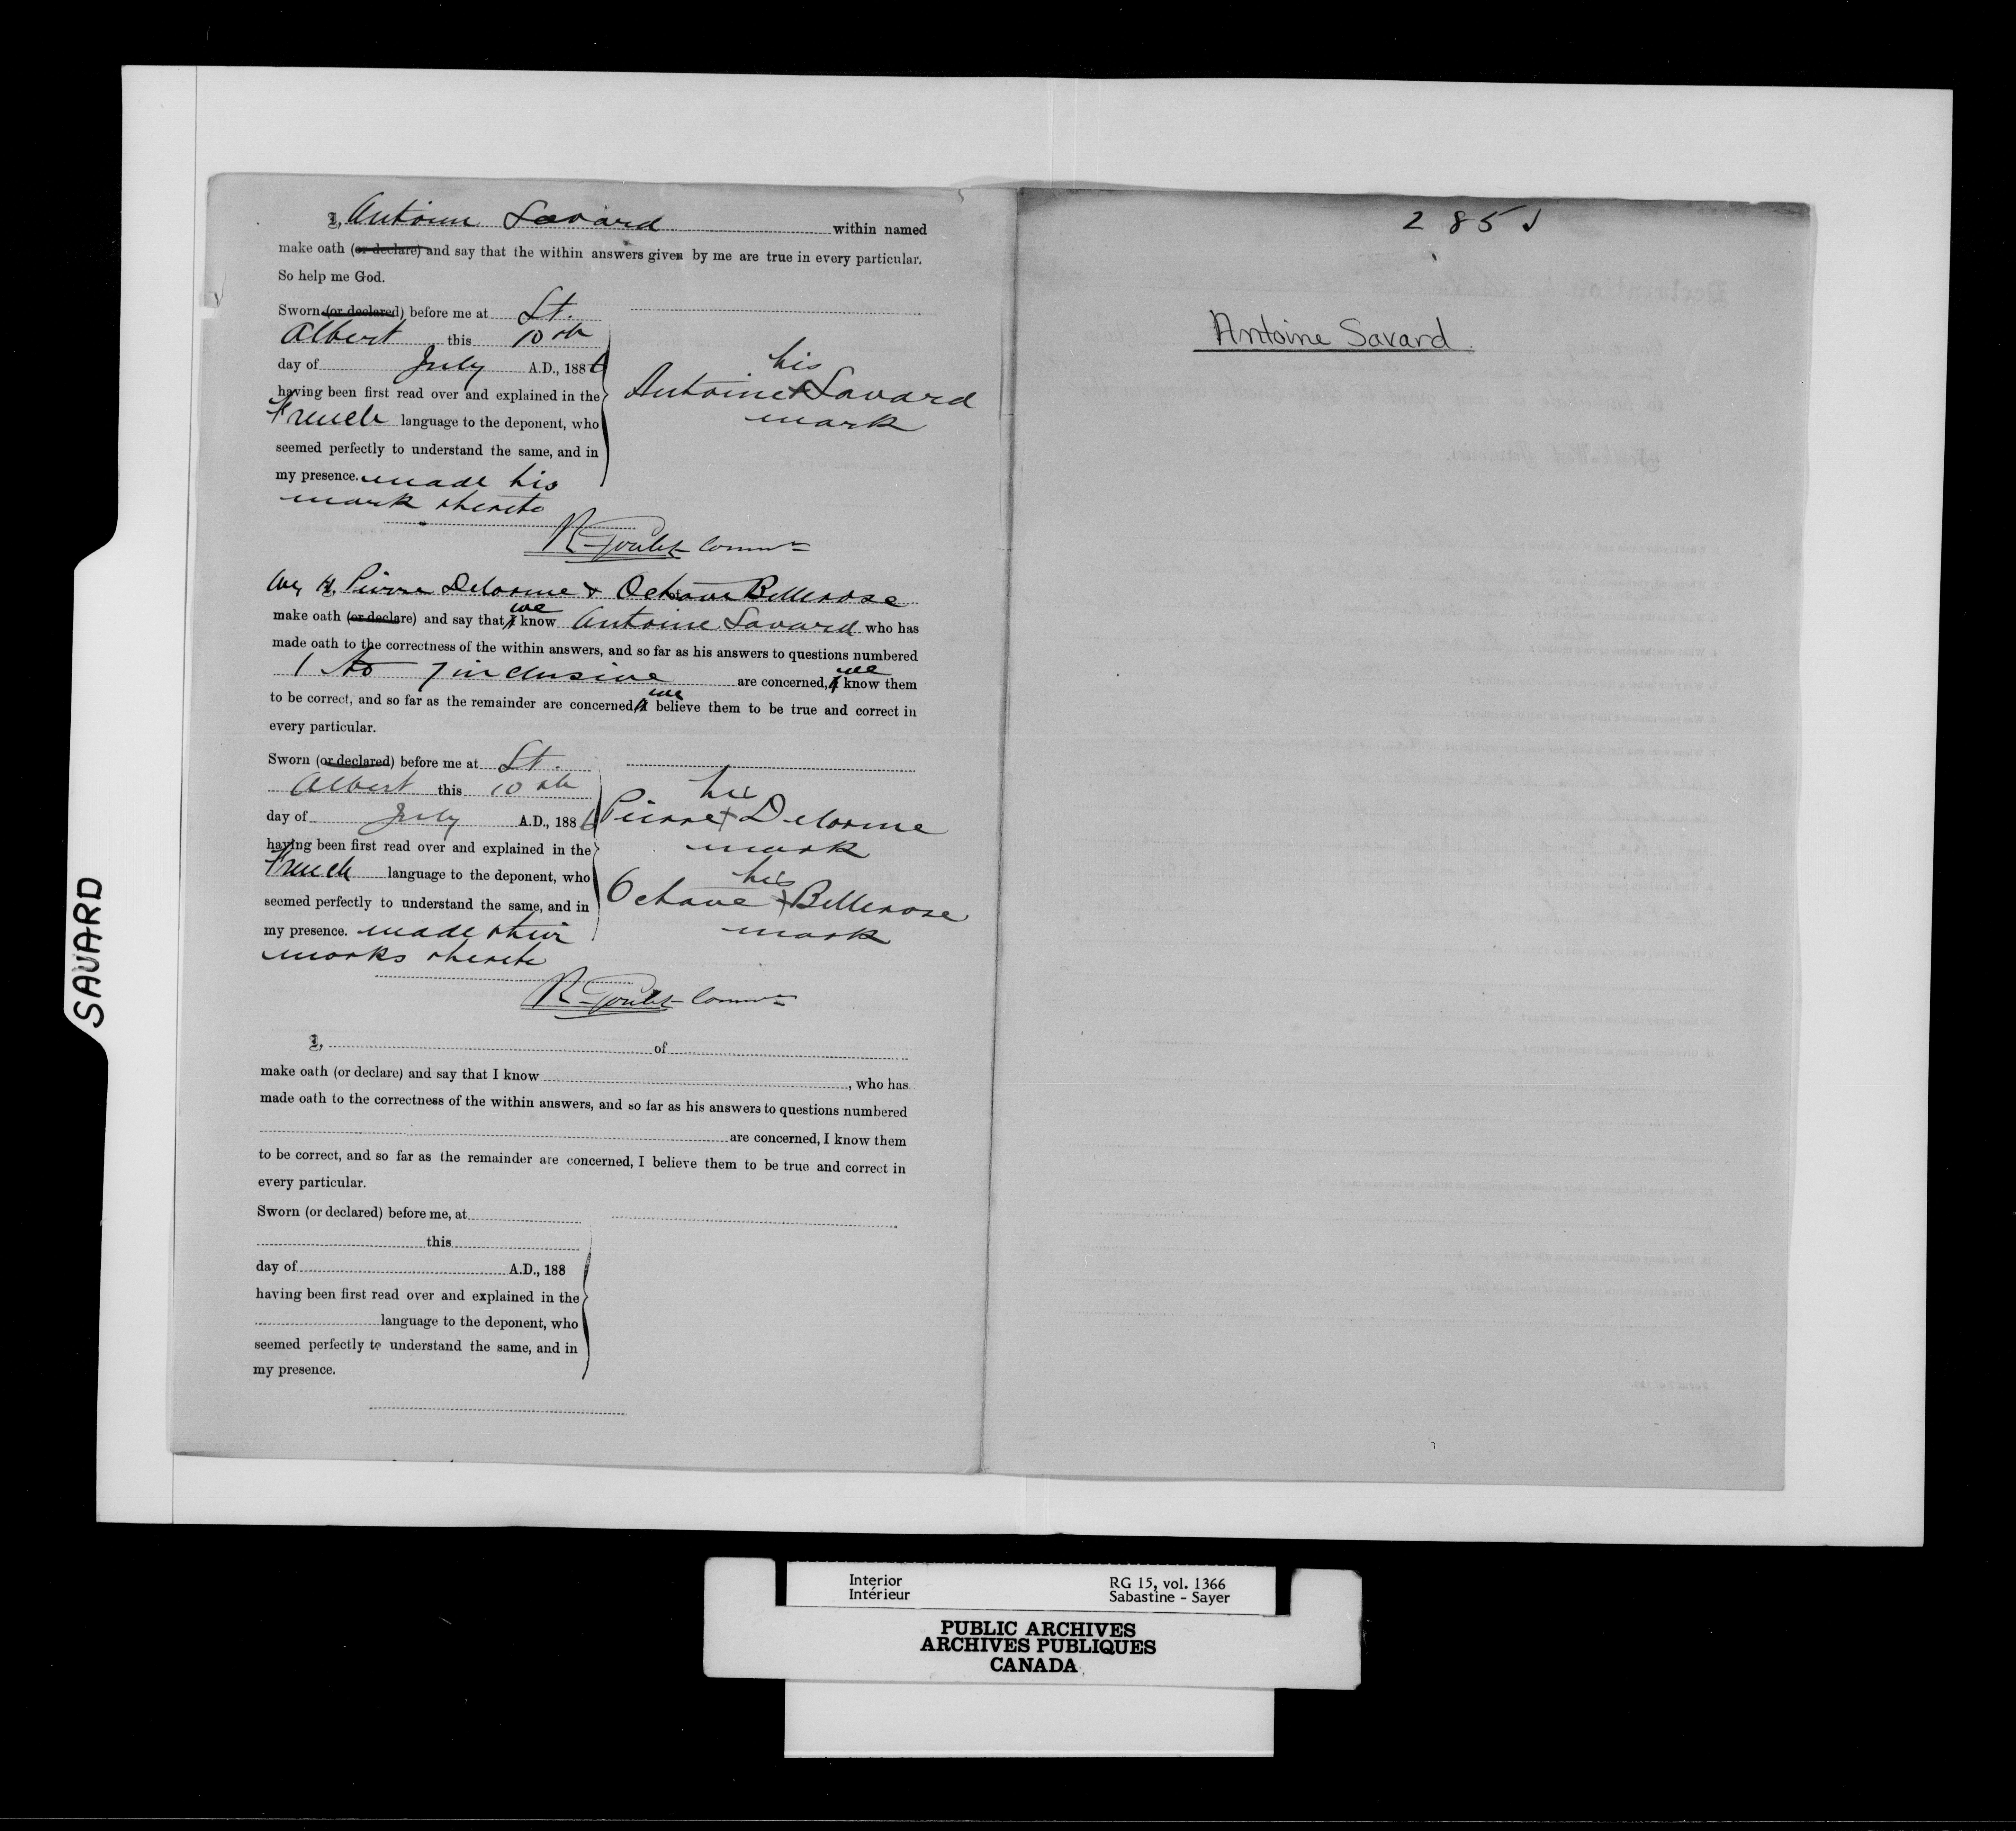 I, Antoine Savard within named
make oath (or declare) and say that the within answers given by me are true in every particular.
So help me God.
Sworn (or declared) before me at St.
Albert this 10th
day of July A.D., 1886
having been first read over and explained in the
French language to the deponent, who
seemed perfectly to understand the same, and in
my presence. made his
mark thereto
his
Antoine X Savard
mark
R. Goulet Commr
We, I, Pierre Delorme & Octave Bellerose
we
make oath (or declare) and say that I know Antoine Savard who has
made oath to the correctness of the within answers, and so far as his answers to questions numbered
we
1 to 7 inclusive are concerned, I know them
we
to be correct, and so far as the remainder are concerned, I believe them to be true and correct in
every particular.
Sworn (or declared) before me at St.
Albert this 10th
day of July A.D., 1886
having been first read over and explained in the
French language to the deponent, who
seemed perfectly to understand the same, and in
my presence. made their
marks thereto
his
Pierre X Delorme
mark
his
Octave X Bellerose
mark
R. Goulet Commr
I, of
make oath (or declare) and say that I know , who has
made oath to the correctness of the within answers, and so far as his answers to questions numbered
are concerned, I know them
to be correct, and so far as the remainder are concerned, I believe them to be true and correct in
every particular.
Sworn (or declared) before me, at
this
day of A.D., 188
having been first read over and explained in the
language to the deponent, who
seemed perfectly to understand the same, and in
my presence.
285
Antoine Savard.
SAVARD
Interior
Intérieur
RG 15, vol. 1366
Sabastine - Sayer
PUBLIC ARCHIVES
ARCHIVES PUBLIQUES
CANADA